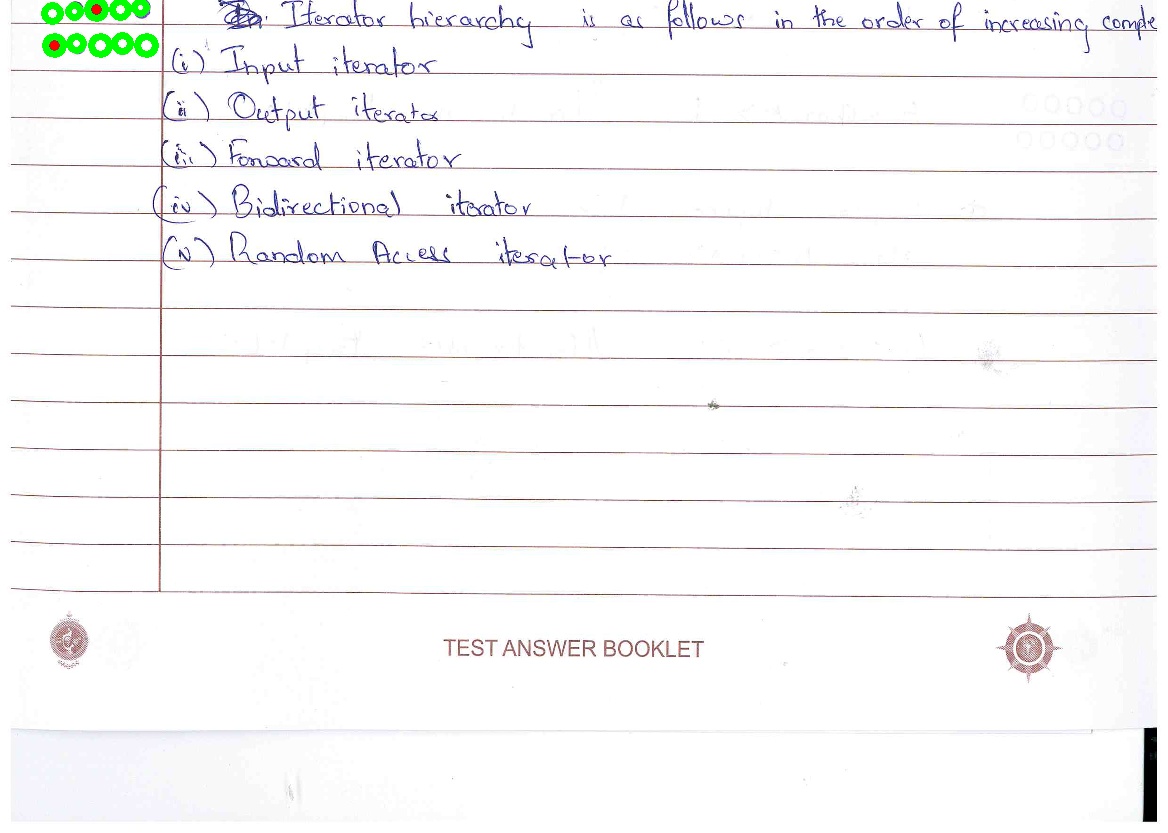 Iterator hierarchy is as follows in the order of increasing comple
(i) Input iterator
(ii) Output iterator
(iii) Forward iterator
(iv) Bidirectional iterator
(v) Random Access iterator
TEST ANSWER BOOKLET